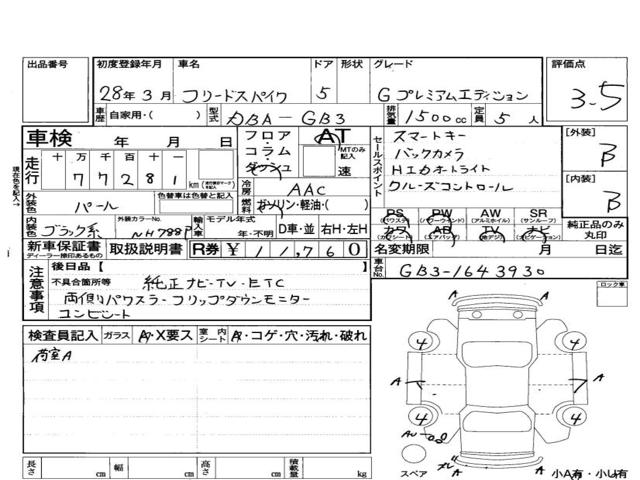 出品番号 初度登録年月 車名 ドア 形状 グレード 評価点
28年3月 フリードスパイク 5 Gプレミアムエディション 3.5
車歴 自家用・( ) 型式 DBA-GB3 排気量 1500cc 定員 5人
車検 年 月 日
フロア・コラム・ダッシュ AT MTのみ記入 速
セールスポイント
スマートキー
バックカメラ
HIDオートライト
クルーズコントロール
[外装] B
[内装] B
現在色を記入→
走行 十 万 千 百 十 一
77281 km
冷房 AAC
燃料 ガソリン・軽油・( )
外装色 パール 色替車は色替と記入
内装色 ブラック系 外装カラーNo. NH788P
輸入車 モデル年式 年・不明 D車・並 右H・左H
PS パワステ PW パワーウインド AW アルミホイル SR サンルーフ
カワ カワシート AB エアバッグ TV 地デジ ナビ ナビゲーション
純正品のみ丸印
新車保証書 ディーラー捺印あるもの 取扱説明書 R券 ¥11,760
名変期限 月 日迄
車台No. GB3-1643930
ロック車
注意事項
後日品【 】
不具合箇所等 純正ナビ・TV・ETC
両側パワスラ・フリップダウンモニター
コンビシート
検査員記入 ガラス A・X要ス 室内シート A・コゲ・穴・汚れ・破れ
荷室A
A
4 4
A A
4 4
A
スペア
小A有・小U有
長さ cm 幅 cm 高さ cm 積載量 kg